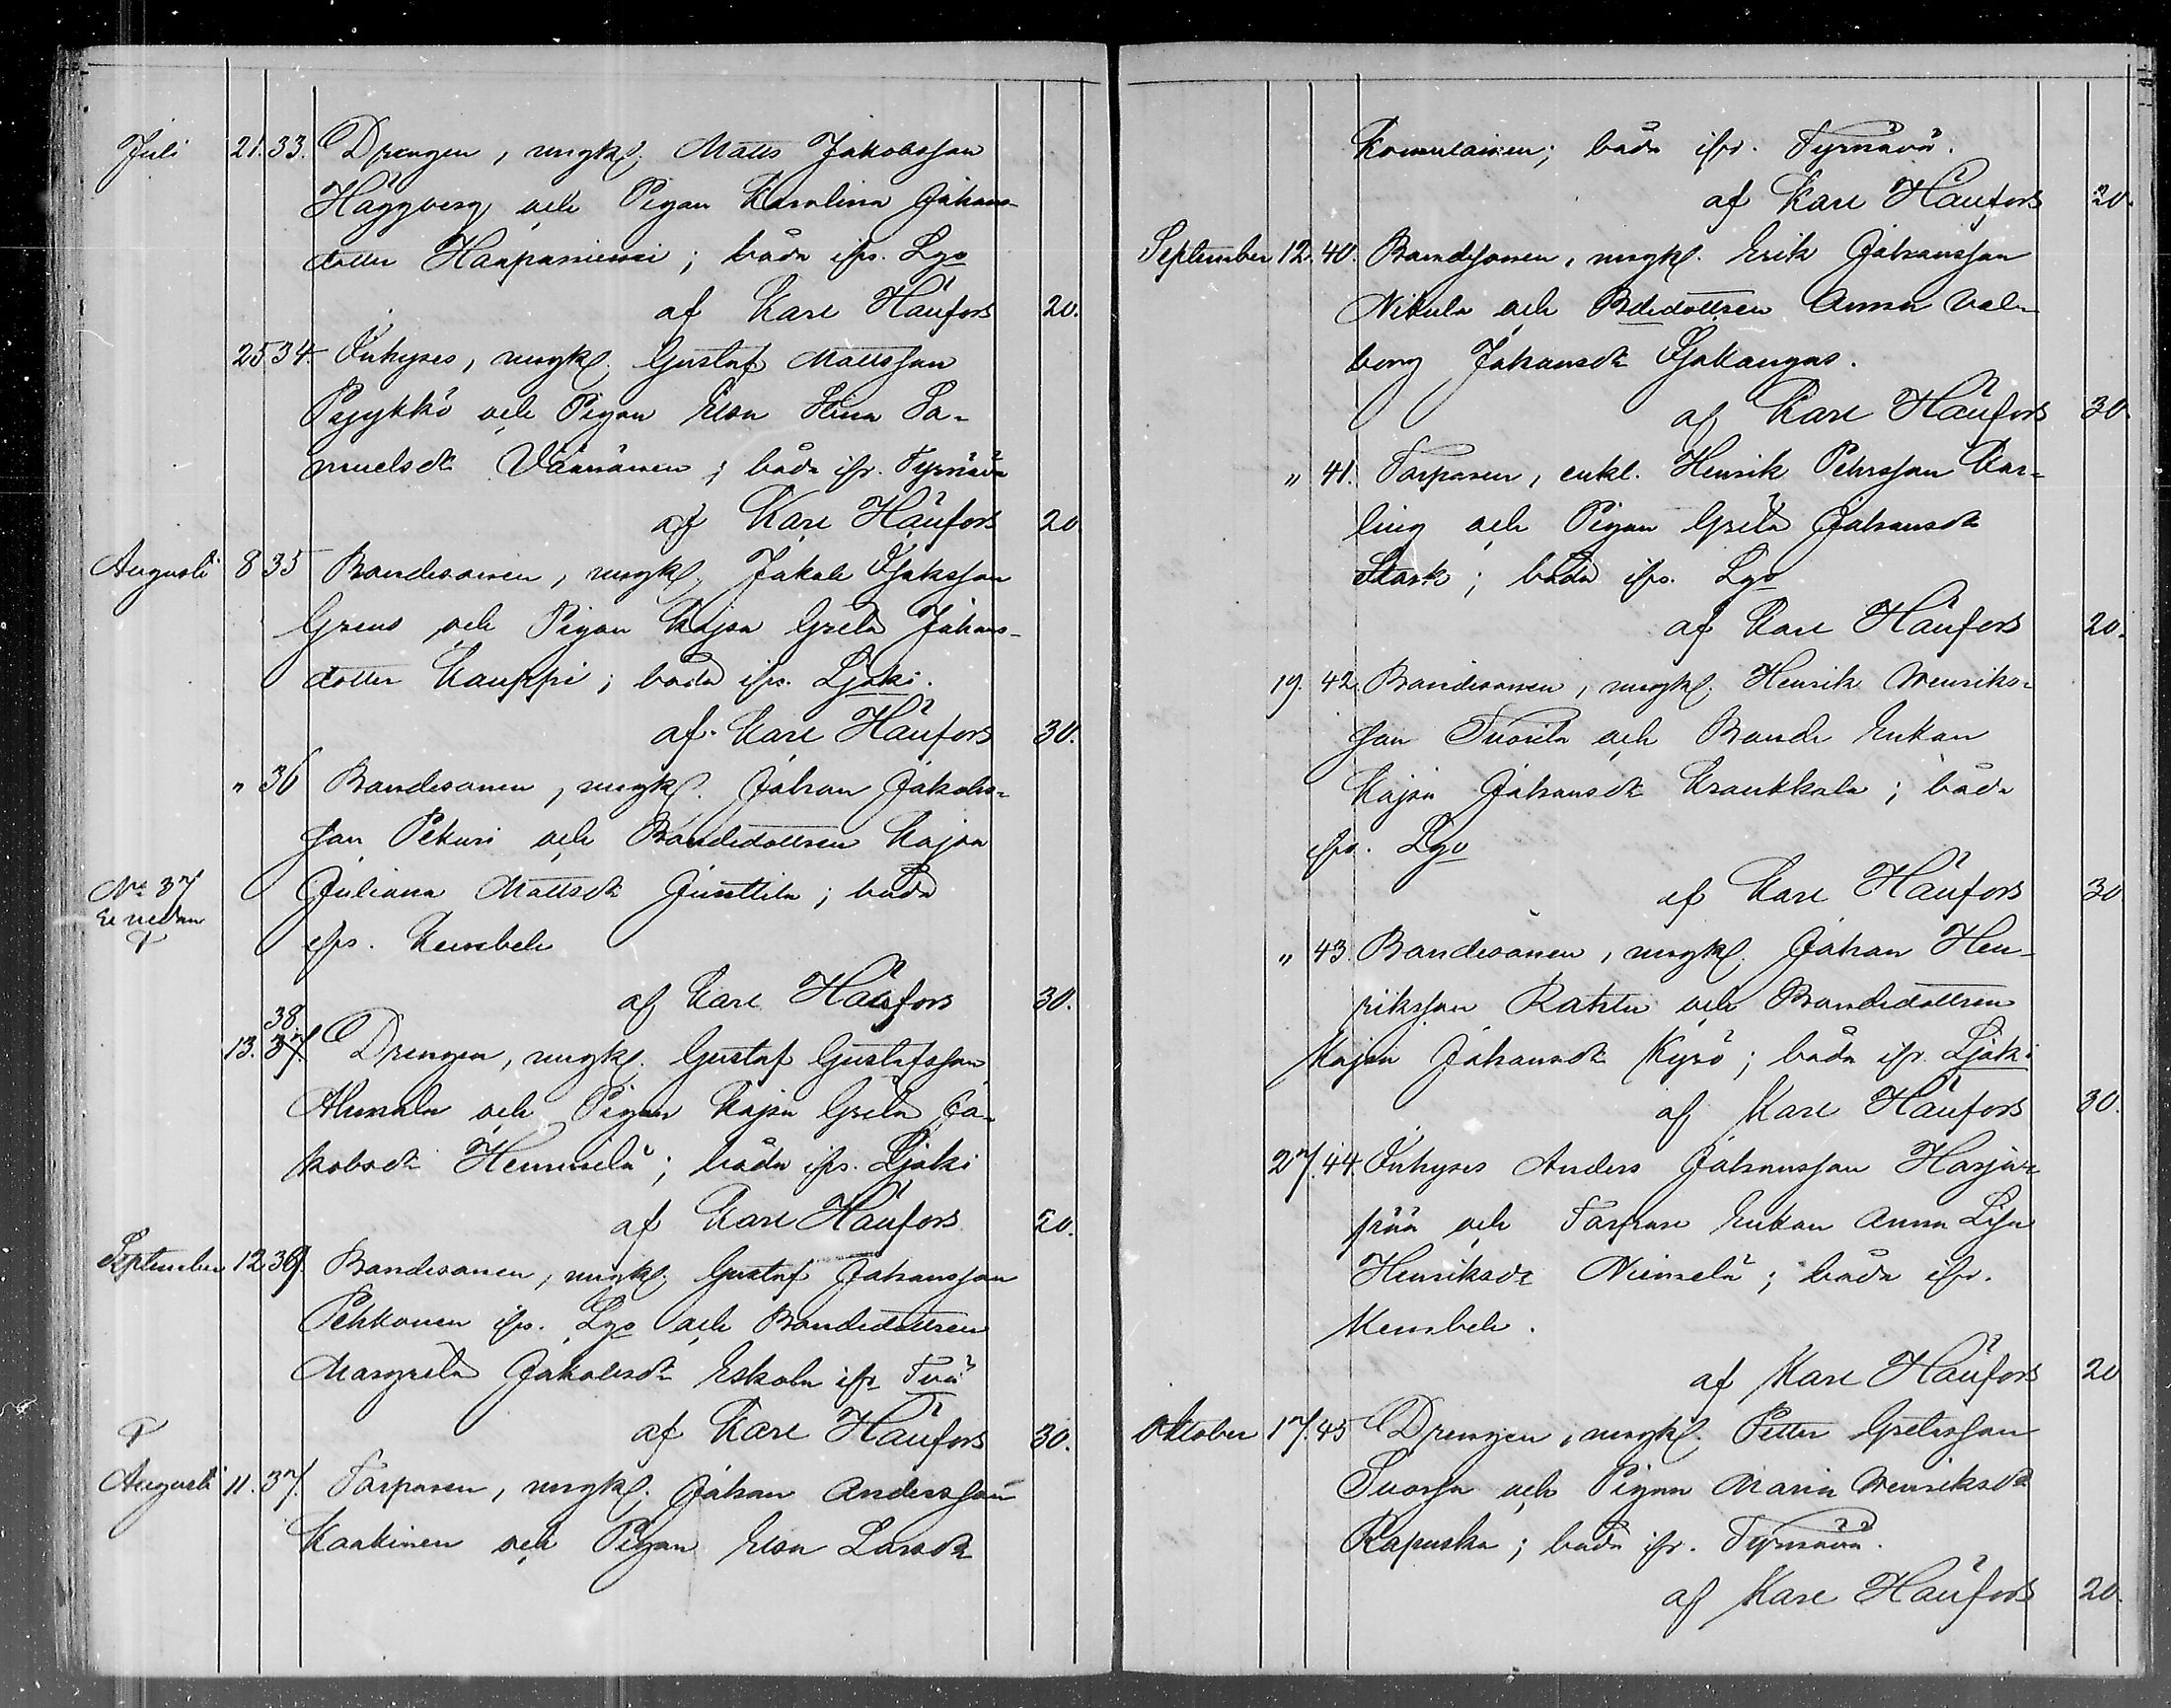 Juli 21. 33. Drengen, ungkl. Matts Jakobsson
Häggberg och Pigan Karolina Johans-
dotter Haapaniemi; båda ifrs. Lgo
af Karl Häufors 20.
25 34. Inhyses, ungkl. Gustaf Mattsson
Pyykkö och Pigan Elsa Stina Sa-
muelsdr Väänänen; båda ifr. Tyrnävä
af Karl Häufors 20
Augusti 8 35 Bondesonen, ungkl. Jakob Isaksson
Greus och Pigan Kajsa Greta Johans-
dotter Kauppi; båda ifrs. Ljoki.
af Karl Häufors 30.
" 36 Bondesonen, ungkl. Johan Jakobs-
son Pekuri och Bondedottren Kajsa
No 37 Juliana Mattsdr Junttila; båda
se nedan
ifrs. Kembele
af Karl Häufors 30.
38.
13. 37. Drengen, ungkl. Gustaf Gustafsson
Ahmala och Pigan Kajsa Greta Ja-
kobsdr Hemmilä; båda ifrs. Ljoki
af Karl Häufors 20.
September 12 39. Bondesonen, ungkl. Gustaf Johansson
Pehkonen ifrs. Lgo och Bondedottren
Margreta Jakobsdr Eskola ifr Tvä
af Karl Häufors 30.
Augusti 11. 37. Torparen, ungkl. Johan Andersson
Kaakinen och Pigan Elsa Larsdr
Komulainen; båda ifrs. Tyrnävä.
af Karl Häufors 20.
September 12. 40. Bondesonen, ungkl. Erik Johansson
Nikula och Bdedottren Anna Val-
borg Johansdr Ojakangas.
af Karl Häufors 30
" 41. Torparen, enkl. Henrik Pehrsson Kar-
ling och Pigan Greta Johansdr
Stark; båda ifrs. Lgo
af Karl Häufors 20.
19. 42 Bondesonen, ungkl. Henrik Henriks-
son Tuorila och Bonde Enkan
Kajsa Johansdr Krankkala; båda
ifrs. Lgo
af Karl Häufors 30
" 43. Bondesonen, ungkl. Johan Hen-
riksson Rahtu och Bondedottren
Kajsa Johansdr Kyrö; båda ifr. Ljoki
af Karl Häufors 30.
27. 44. Inhyses Anders Johansson Harju-
pää och Torpare Enkan Anna Lisa
Henriksdr Niemelä; båda ifrs.
Kembele.
af Karl Häufors 20
Oktober 17. 45 Drengen, ungkl. Petter Gretasson
Suorsa och Pigan Maria Henriksdr
Rapuska; båda ifr. Tyrnävä.
af Karl Häufors 20.